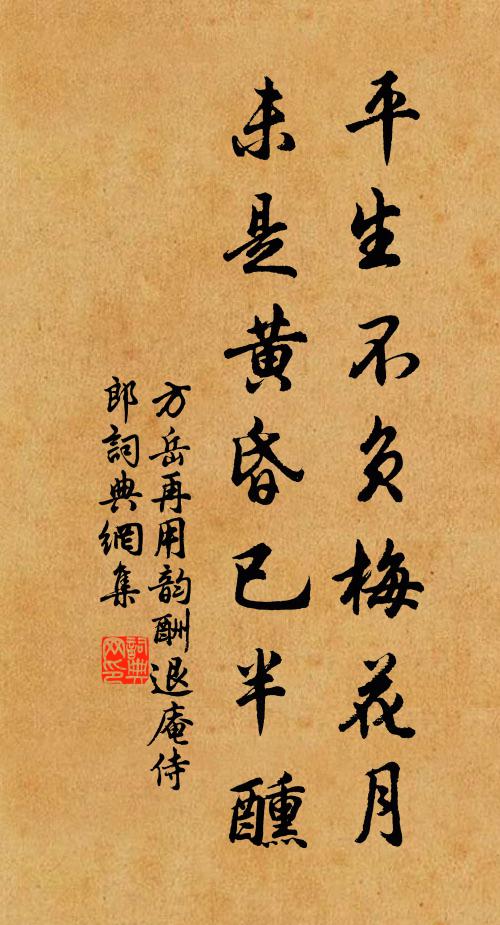 平生不負梅花月
未是黃昏已半醺
方岳再用韵酬退庵侍
郎詞典網集
詞典
网印